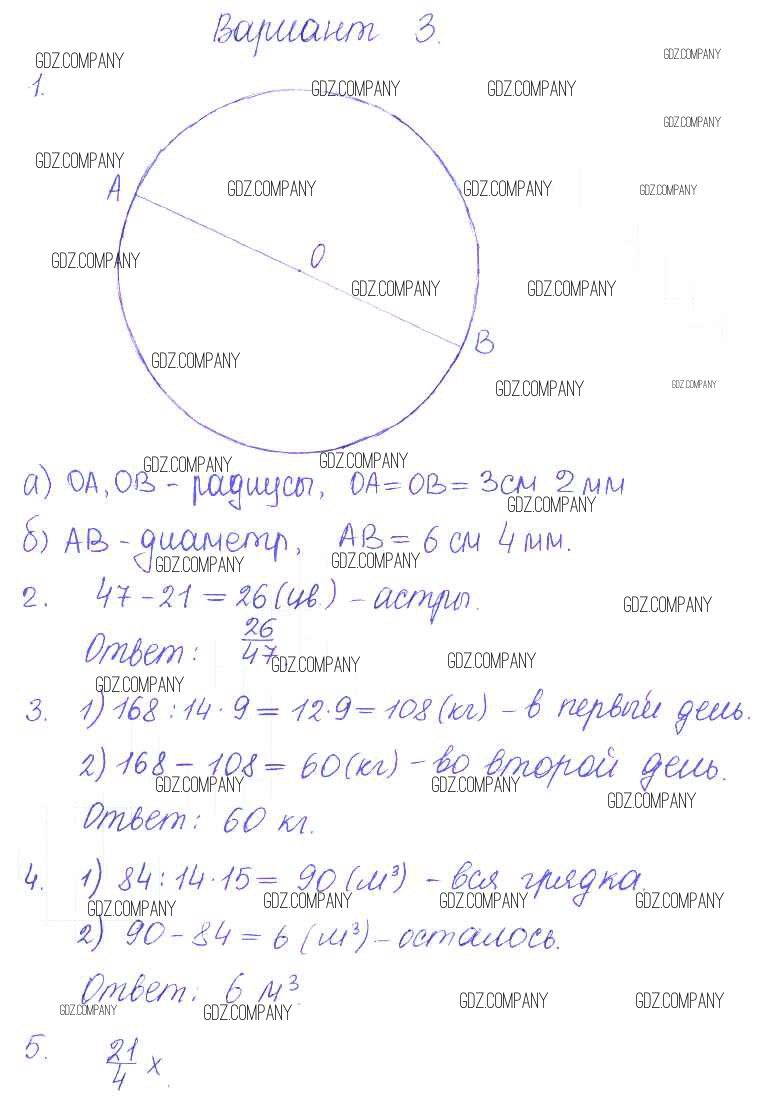 Вариант 3.
GDZ.COMPANY GDZ.COMPANY
1.
GDZ.COMPANY GDZ.COMPANY
GDZ.COMPANY
GDZ.COMPANY
A GDZ.COMPANY GDZ.COMPANY GDZ.COMPANY
GDZ.COMPANY O
GDZ.COMPANY GDZ.COMPANY
B
GDZ.COMPANY
GDZ.COMPANY GDZ.COMPANY
GDZ.COMPANY GDZ.COMPANY
а) OA, OB - радиусы, OA = OB = 3 см 2 мм
GDZ.COMPANY
б) AB - диаметр, AB = 6 см 4 мм.
GDZ.COMPANY GDZ.COMPANY
2. 47 - 21 = 26 (цв.) - астры.
GDZ.COMPANY
Ответ: 26/47
GDZ.COMPANY GDZ.COMPANY
GDZ.COMPANY
3. 1) 168 : 14 · 9 = 12 · 9 = 108 (кг) - в первый день.
2) 168 - 108 = 60 (кг) - во второй день.
GDZ.COMPANY GDZ.COMPANY
GDZ.COMPANY
Ответ: 60 кг.
4. 1) 84 : 14 · 15 = 90 (м³) - вся грядка.
GDZ.COMPANY GDZ.COMPANY GDZ.COMPANY GDZ.COMPANY
2) 90 - 84 = 6 (м³) - осталось.
Ответ: 6 м³.
GDZ.COMPANY GDZ.COMPANY GDZ.COMPANY GDZ.COMPANY
5. 21/4 x.